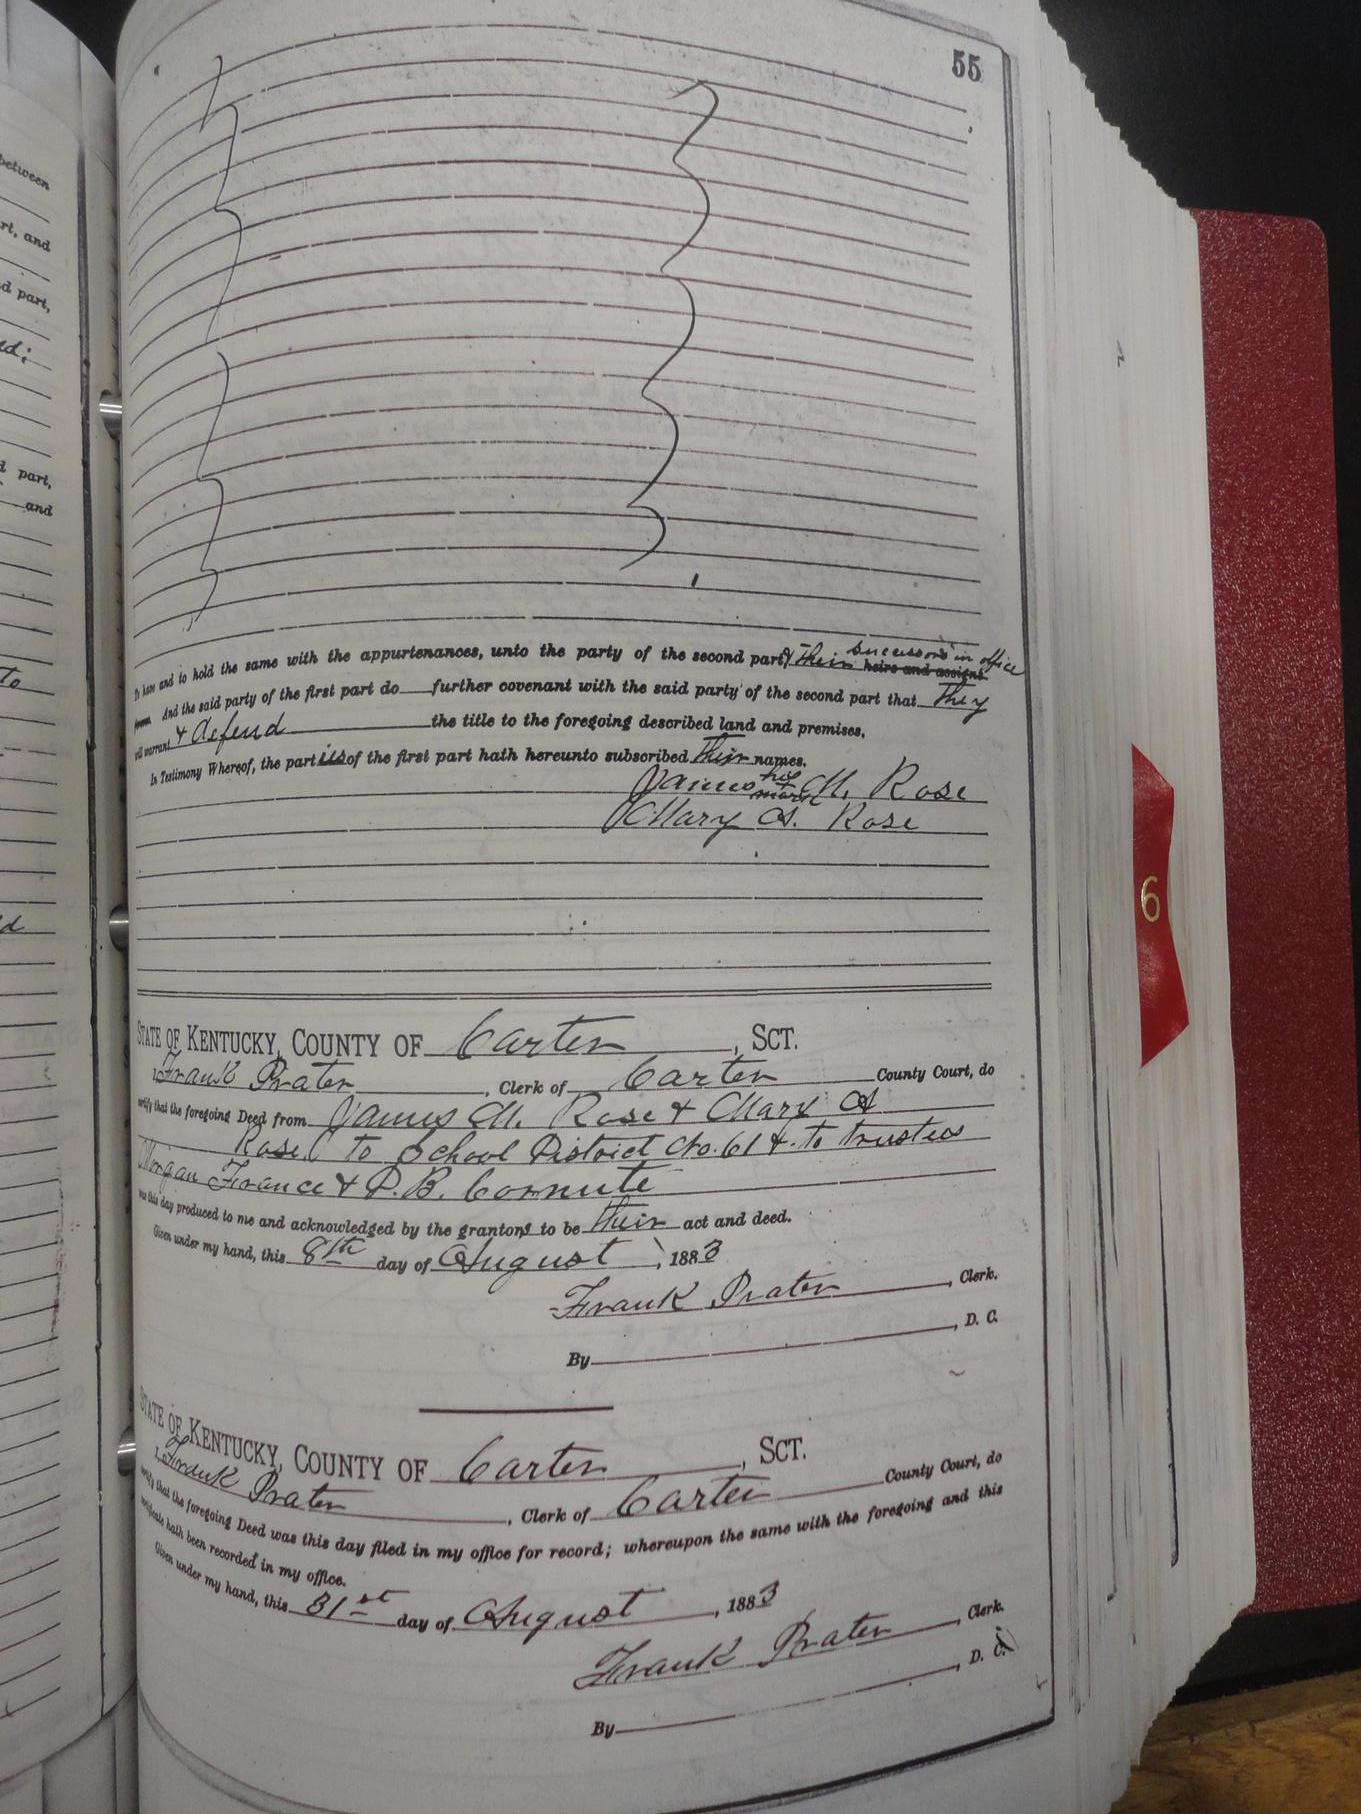 55
between
rt, and
d part,
nd;
d part,
and
to
d
To have and to hold the same with the appurtenances, unto the party of the second part, & their heirs and assigns successors in office
forever. And the said party of the first part do further covenant with the said party of the second part that they
will warrant & defend the title to the foregoing described land and premises.
In Testimony Whereof, the parties of the first part hath hereunto subscribed their names.
James his mark M. Rose
Mary A. Rose
STATE OF KENTUCKY, COUNTY OF Carter, SCT.
I, Frank Prater, Clerk of Carter County Court, do
certify that the foregoing Deed from James M. Rose & Mary A
Rose to School District No. 61 & to trustees
Morgan France & P. B. Cornute
was this day produced to me and acknowledged by the grantors to be their act and deed.
Given under my hand, this 8th day of August, 1883
Frank Prater, Clerk.
By, D. C.
STATE OF KENTUCKY, COUNTY OF Carter, SCT.
I, Frank Prater, Clerk of Carter County Court, do
certify that the foregoing Deed was this day filed in my office for record; whereupon the same with the foregoing and this
certificate hath been recorded in my office.
Given under my hand, this 31st day of August, 1883
Frank Prater, Clerk.
By, D. C.
6